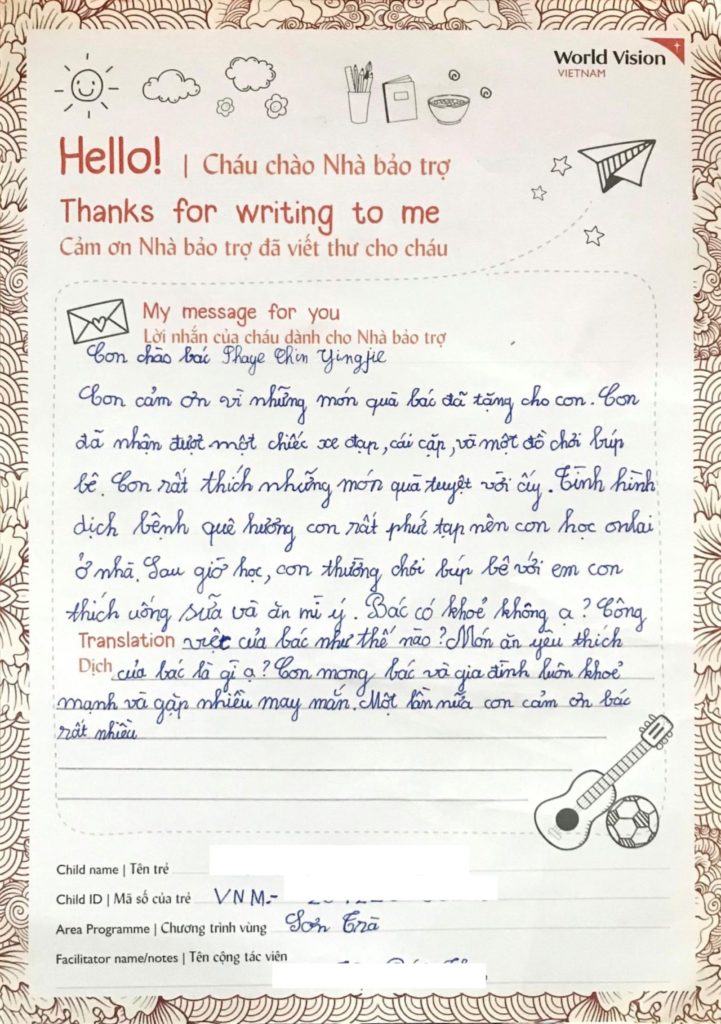 World Vision
VIETNAM
Hello! | Cháu chào Nhà bảo trợ
Thanks for writing to me
Cảm ơn Nhà bảo trợ đã viết thư cho cháu
My message for you
Lời nhắn của cháu dành cho Nhà bảo trợ
Con chào bác Phaye Chin Yingjie
Con cảm ơn vì những món quà bác đã tặng cho con. Con
đã nhận đượt một chiếc xe đạp, cái cặp, và một đồ chơi búp
bê. Con rất thích những món quà tuyệt vời ấy. Tình hình
dịch bệnh quê hương con rất phứt tạp nên con học onlai
ở nhà. Sau giờ học, con thường chơi búp bê với em con
thích uống sữa và ăn mì ý. Bác có khoẻ không ạ? Công
Translation việc của bác như thế nào? Món ăn yêu thích
Dịch của bác là gì ạ? Con mong bác và gia đình luôn khoẻ
mạnh và gặp nhiều may mắn. Một lần nữa con cảm ơn bác
rất nhiều
Child name | Tên trẻ
Child ID | Mã số của trẻ VNM-
Area Programme | Chương trình vùng Sơn Trà
Facilitator name/notes | Tên cộng tác viên